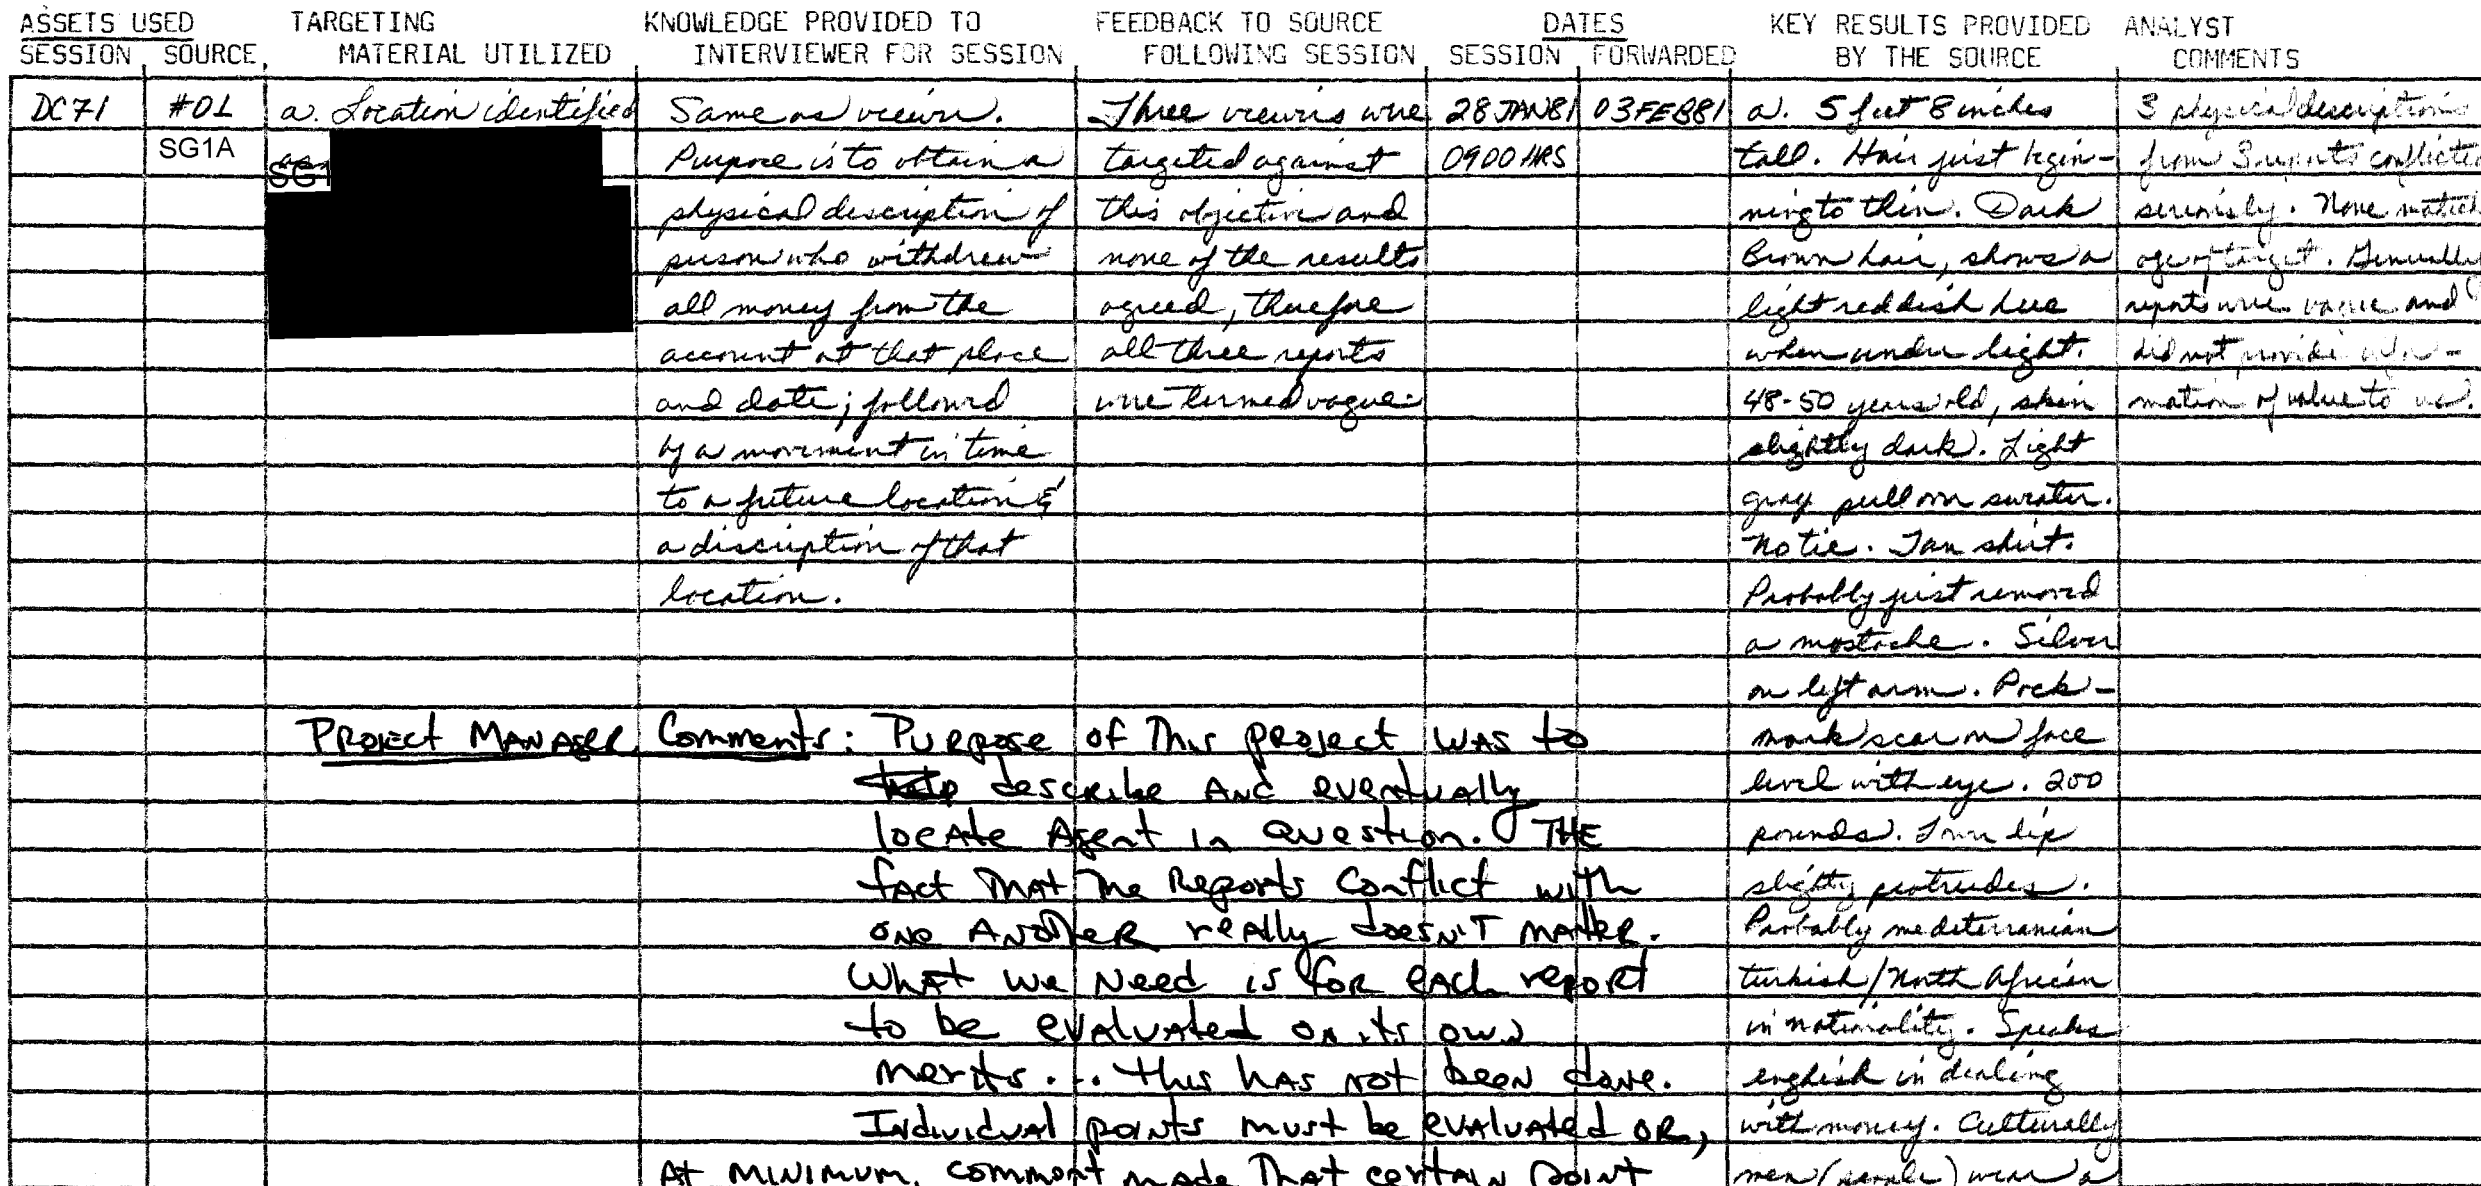 ASSETS USED TARGETING KNOWLEDGE PROVIDED TO FEEDBACK TO SOURCE DATES KEY RESULTS PROVIDED ANALYST
SESSION SOURCE MATERIAL UTILIZED INTERVIEWER FOR SESSION FOLLOWING SESSION SESSION FORWARDED BY THE SOURCE COMMENTS
DC71
#01
SG1A
a. Location identified
SG1
Same as viewer.
Purpose is to obtain a
physical description of
person who withdrew
all money from the
account at that place
and date; followed
by a movement in time
to a future location &
a discription of that
location.
Three viewers were
targeted against
this objective and
none of the results
agreed, therefore
all three reports
were termed vague.
28 JAN 81
0900 HRS
03 FEB 81
a. 5 feet 8 inches
tall. Hair just begin-
ning to thin. Dark
Brown hair, shows a
light reddish hue
when under light.
48-50 years old, skin
slightly dark. Light
gray pull on sweater.
No tie. Tan shirt.
Probably just removed
a mostache. Silver
on left arm. Pock-
mark scar on face
level with eye. 200
pounds. Lower lip
slightly protrudes.
Probably mediterranian
turkish/North African
in nationality. Speaks
english in dealing
with money. Culturally
men (people) wear a
3 physical descriptions
from 3 reports conflicted
seriously. None match
age of target. Generally
reports were vague and
did not provide infor-
mation of value to us.
Project Manager Comments: Purpose of this project was to
describe and eventually
locate Agent in question. THE
fact that the reports conflict with
one another really doesn't matter.
What we need is for each report
to be evaluated on its own
merits... this has not been done.
Individual points must be evaluated or,
At minimum, comment made that certain point